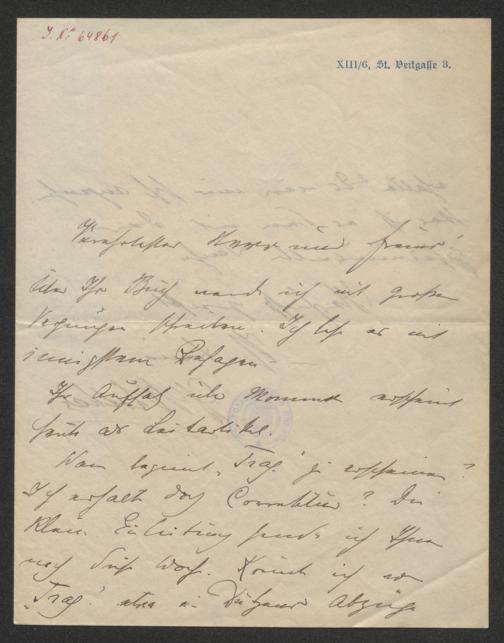 J. N. 64861
XIII/6, St. Veitgasse 3.
Verehrtester Herr und Freund!
Über Ihr Buch werde ich mit großem
Vergnügen schreiben. Ich lese es mit
innigstem Behagen.
Ihr Aufsatz über Mommsen erscheint
heute als Leitartikel.
Wann beginnt „Trag." zu erscheinen?
Ich erhalte doch Correktur? Die
kleine Einleitung sende ich Ihnen
noch diese Woche. Könnte ich von
„Trag." etwa ein Dutzend Abzüge